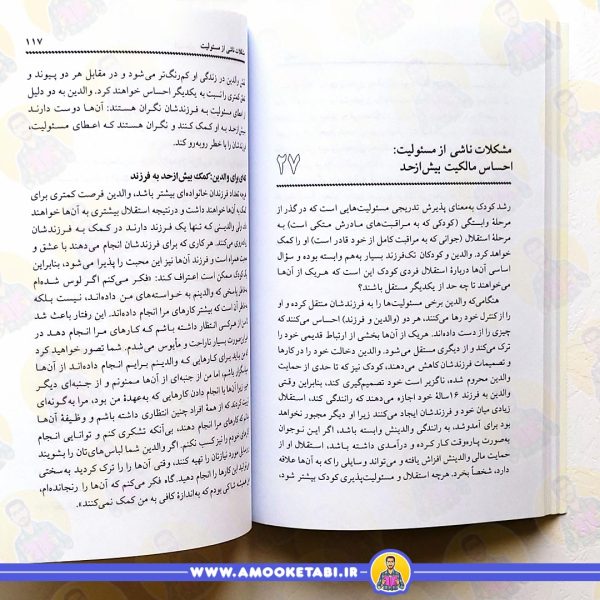 مشکلات ناشی از مسئولیت:
احساس مالکیت بیش‌ازحد
۲۷
رشد کودک به‌معنای پذیرش تدریجی مسئولیت‌هایی است که در گذر از
مرحلهٔ وابستگی (کودکی که به مراقبت‌های مادرش متکی است) به
مرحلهٔ استقلال (جوانی که به مراقبت کامل از خود قادر است) او را کمک
می‌کنند. والدین و کودکان تک‌فرزند بسیار به‌هم وابسته بوده و سؤال
اساسی آن‌ها دربارهٔ استقلال فردی کودک این است که هریک از آن‌ها
می‌خواهند تا چه حد از یکدیگر مستقل باشند؟
هنگامی‌که والدین برخی مسئولیت‌ها را به فرزندشان منتقل کرده و او
را از کنترل خود رها می‌کنند، هر دو (والدین و فرزند) احساس می‌کنند که
چیزی را از دست داده‌اند. هریک از آن‌ها بخشی از ارتباط قدیمی خود را
ترک می‌کند و از دیگری مستقل می‌شود. والدین دخالت خود را در کارها
و تصمیمات فرزندشان کاهش می‌دهند، کودک نیز که تا حدی از حمایت
والدین محروم شده، ناگزیر است خود تصمیم‌گیری کند، بنابراین وقتی
والدین به فرزند ۱۶ سالهٔ خود اجازه می‌دهند که رانندگی کند، استقلال
زیادی میان خود و فرزندشان ایجاد می‌کنند زیرا او دیگر مجبور نخواهد
بود برای آمدوشد، به رانندگی والدینش وابسته باشد. اگر این نوجوان
به‌صورت پاره‌وقت کار کرده و درآمدی داشته باشد، استقلال او از
حمایت مالی والدینش افزایش یافته و می‌تواند وسایلی را که به آن‌ها علاقه
دارد، شخصاً بخرد. هرچه استقلال و مسئولیت‌پذیری کودک بیشتر شود،
مشکلات ناشی از مسئولیت ۱۱۷
نقش والدین در زندگی او کم‌رنگ‌تر می‌شود و در مقابل هر دو پیوند و
تعلق کمتری را نسبت به یکدیگر احساس خواهند کرد. والدین به دو دلیل
از اعطای مسئولیت به فرزندشان نگران هستند: آن‌ها دوست دارند
بیش‌ازحد به او کمک کنند و نگران هستند که اعطای مسئولیت،
فرزندشان را با خطر روبه‌رو کند.
برای والدین: کمک بیش‌ازحد به فرزند
تعداد فرزندان خانواده‌ای بیشتر باشد، والدین فرصت کمتری برای
به آن‌ها خواهند داشت و درنتیجه استقلال بیشتری به آن‌ها خواهند
والدینی که تنها یک فرزند دارند در کمک به فرزندشان
زیاده‌روی می‌کنند. هر کاری که برای فرزندشان انجام می‌دهند با عشق و
محبت همراه است و فرزند آن‌ها نیز این محبت را پذیرا می‌شود، بنابراین
یک کودک ممکن است اعتراف کند: «فکر می‌کنم اگر لوس شده‌ام
پاسخی که والدینم به خواسته‌های من داده‌اند، نیست بلکه
آن است که بیشتر کارهای مرا انجام داده‌اند. این رفتار باعث شد
از هرکسی انتظار داشته باشم که کارهای مرا انجام دهد در
صورت بسیار ناراحت و مأیوس می‌شدم. شما تصور خواهید کرد
من باید برای کارهایی که والدینم برایم انجام داده‌اند از آن‌ها
باشم، اما من از جنبه‌ای از آن‌ها ممنونم و از جنبه‌ای دیگر
زیرا آن‌ها با انجام دادن کارهایی که به‌عهدهٔ من بود، مرا به‌گونه‌ای
کردند که از همهٔ افراد چنین انتظاری داشته باشم و وظیفهٔ آن‌ها
را انجام دهند، بی‌آنکه تشکری کنم و توانایی انجام
کارهای خودم را نیز کسب نکنم. اگر والدین شما لباس‌های‌تان را بشویند
موردنیازتان را تهیه کنند، وقتی آن‌ها را ترک کردید به‌سختی
این کارها را انجام دهید. گاه فکر می‌کنم که آن‌ها را رنجانده‌ام،
همیشه شاکی بودم که به‌اندازهٔ کافی به من کمک نمی‌کنند».
WWW.AMOOKETABI.IR